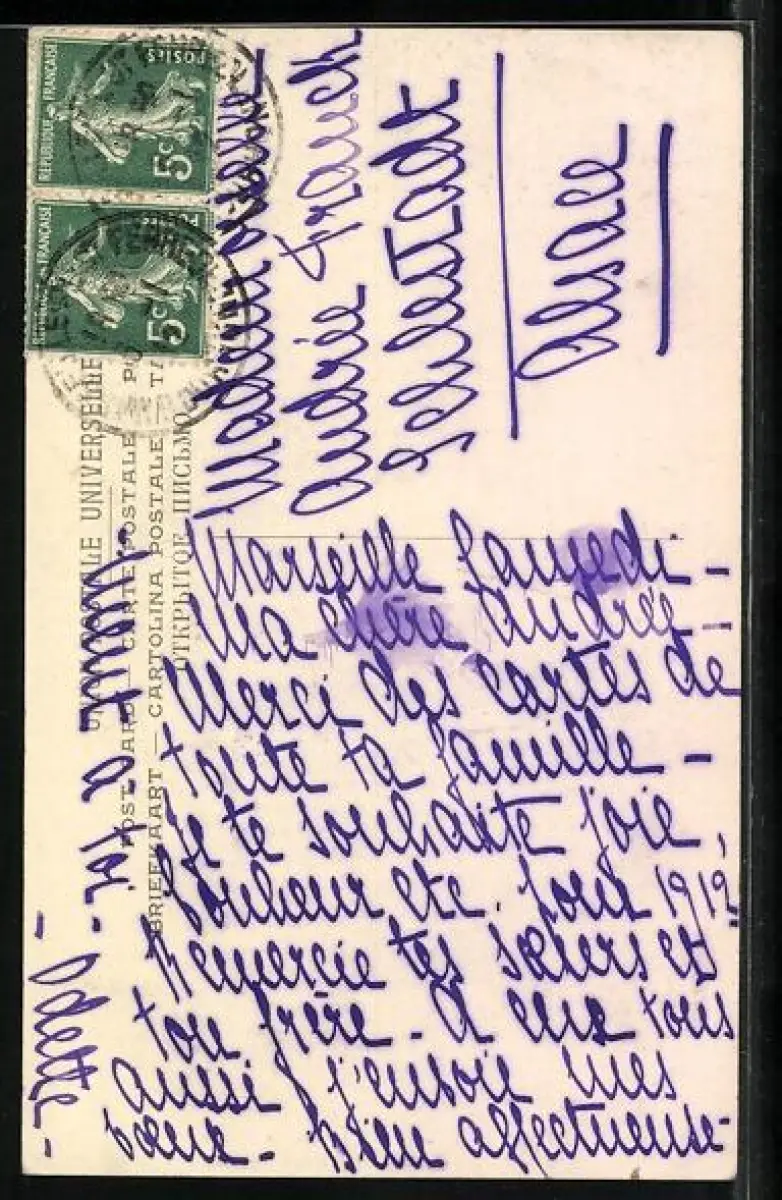 REPUBLIQUE FRANÇAISE
POSTES
5c
REPUBLIQUE FRANÇAISE
5c
UNION POSTALE UNIVERSELLE
POSTCARD — CARTE POSTALE — PO
BRIEFKAART — CARTOLINA POSTALE — TA
ОТКРЫТОЕ ПИСЬМО
Mademoiselle
Andrée Franck
Schelestadt
Alsace
Marseille Samedi –
Ma chère Andrée –
Merci des cartes de
toute ta famille –
Je te souhaite joie,
bonheur etc. pour 1912
Remercie tes sœurs et
ton frère – A eux tous
aussi j'envoie mes
vœux – Bien affectueuse-
ment à toi.
Odette –